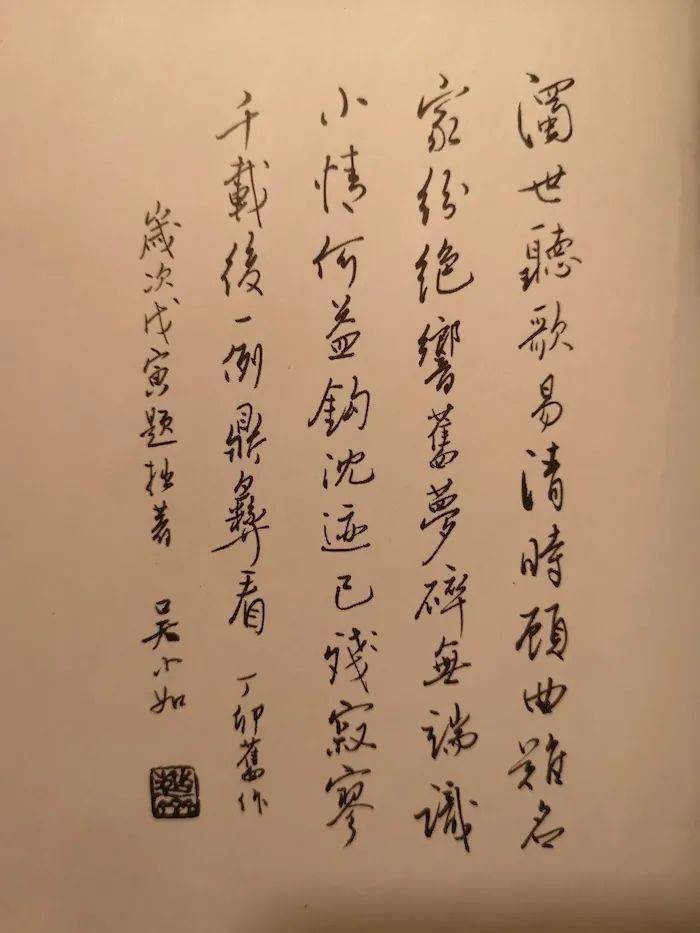 濁世聽歌易清時顧曲難名
家紛絕響舊夢碎無端識
小情何益鈎沈迹已殘寂寥
千載後一例鼎彝看 丁卯舊作
歲次戊寅題拙著 吳小如